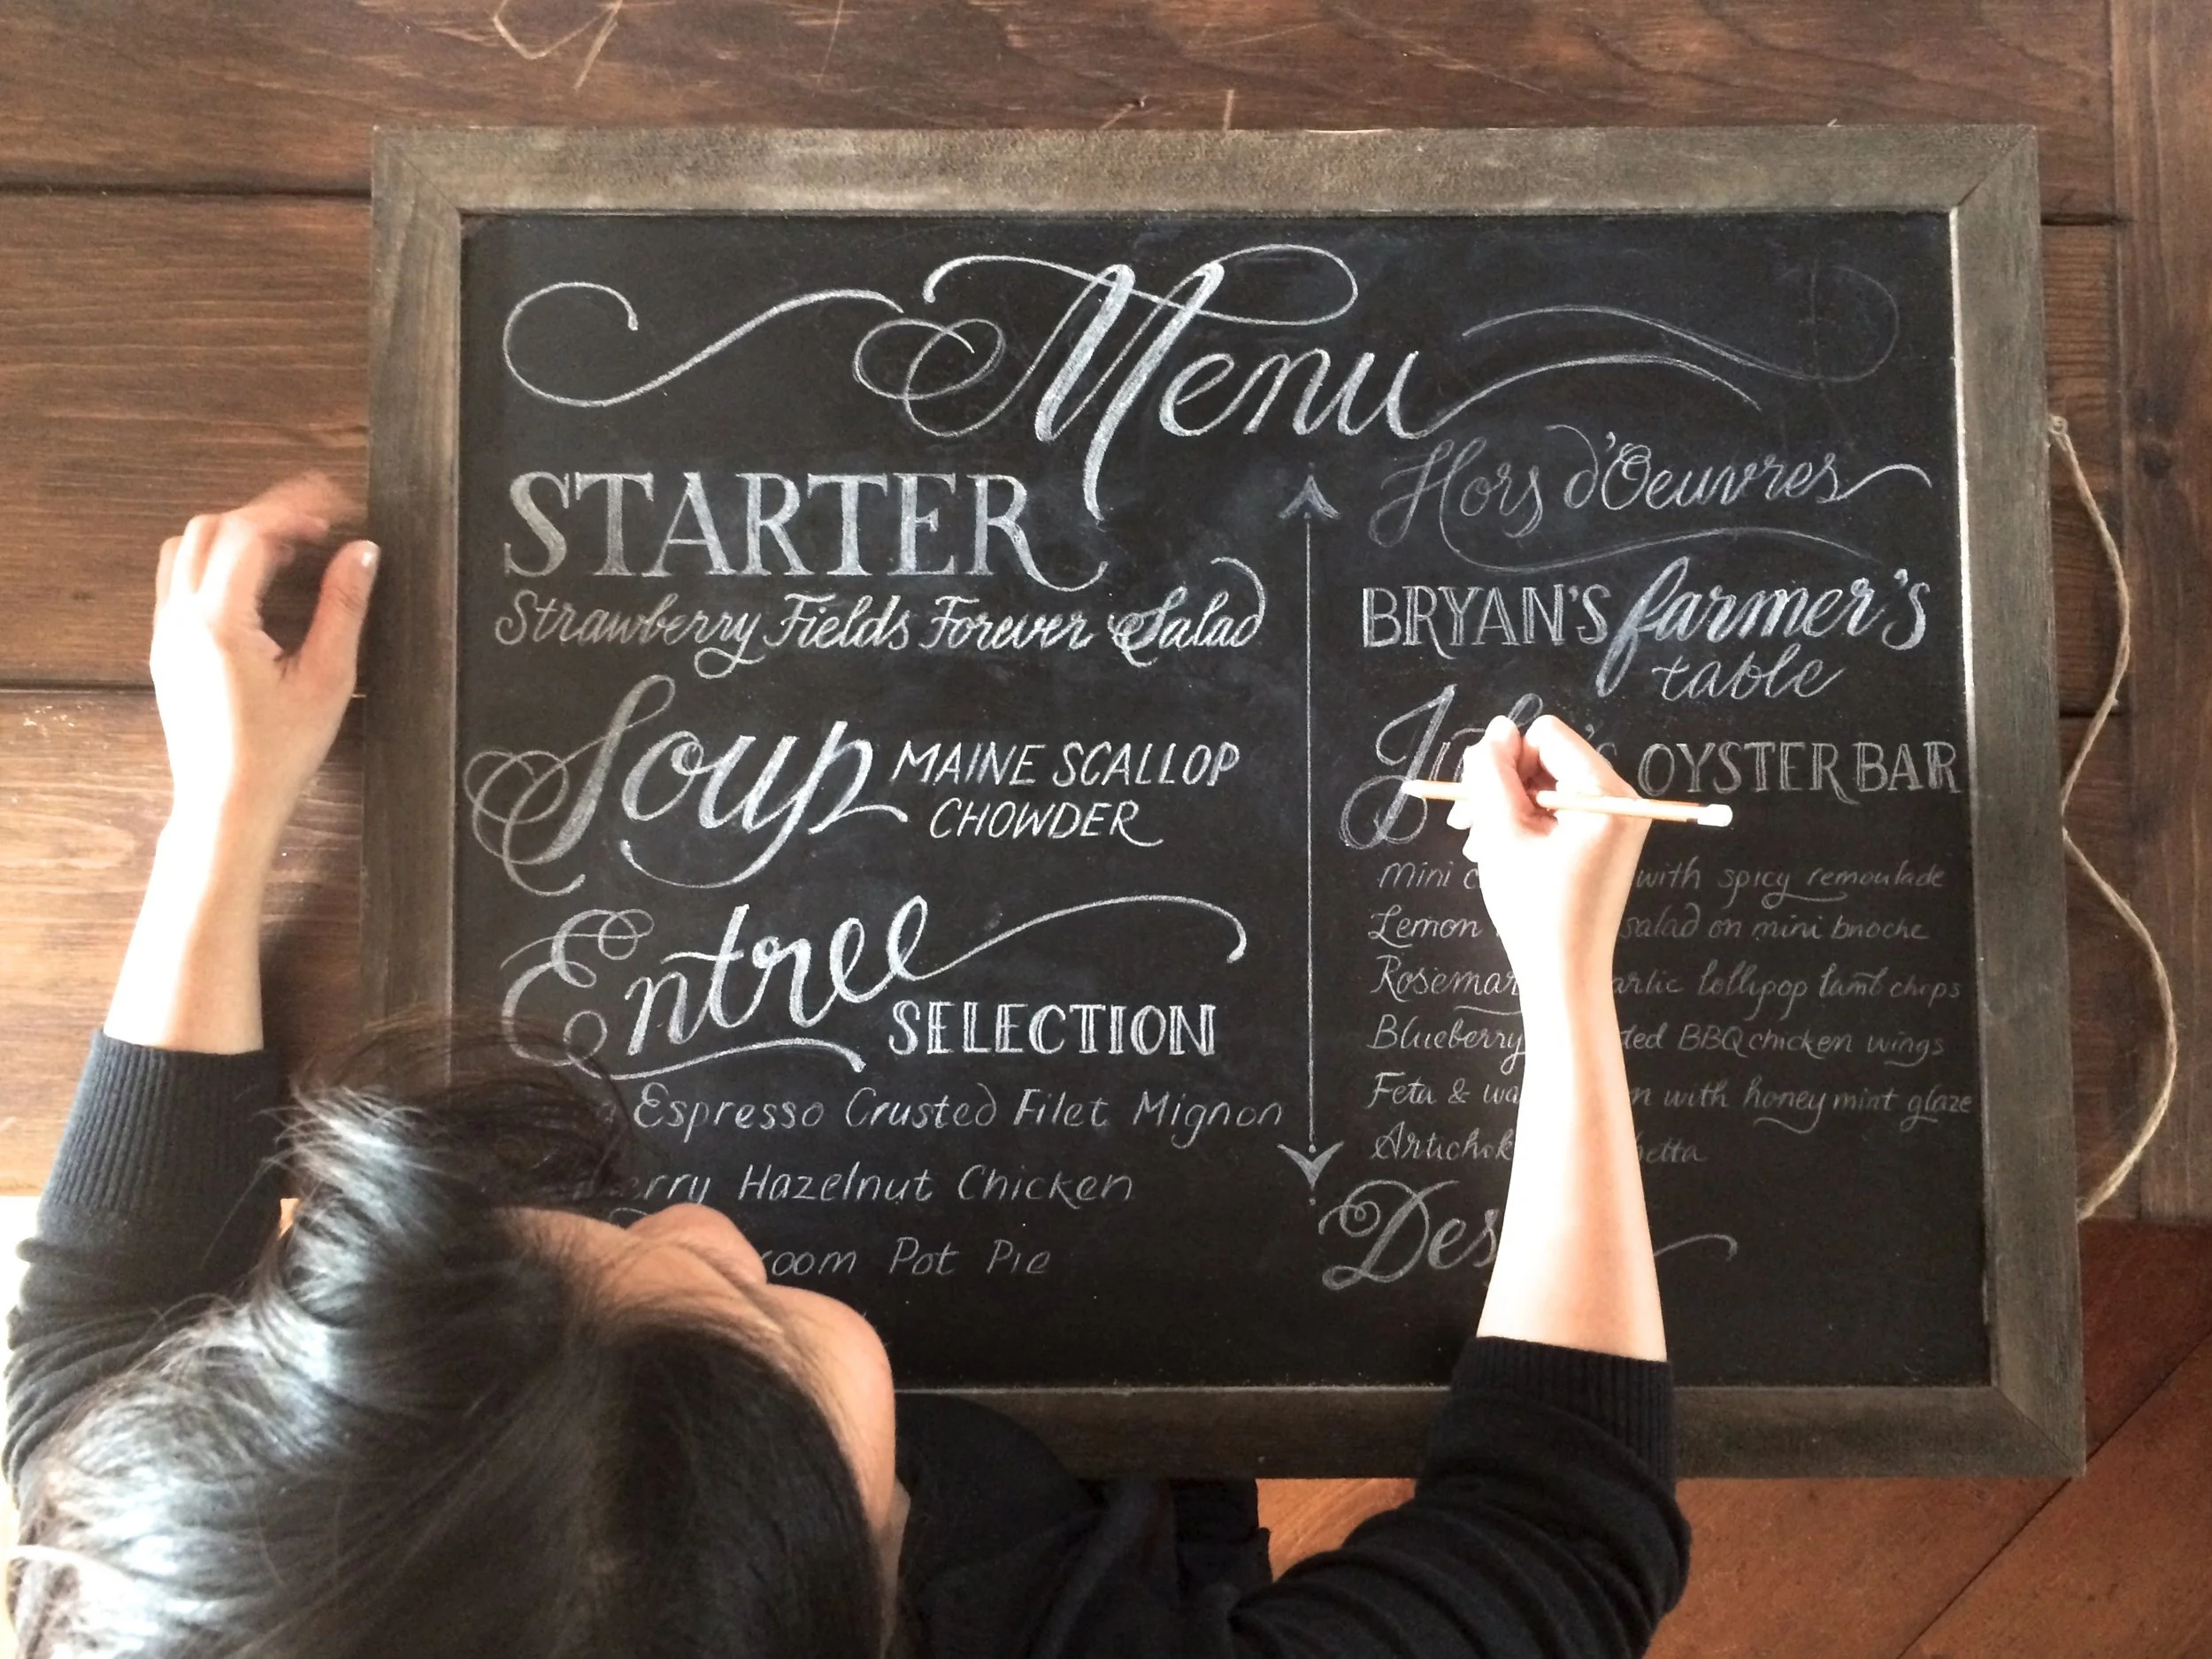 Menu
STARTER
Strawberry Fields Forever Salad
Soup MAINE SCALLOP
CHOWDER
Entree
SELECTION
Espresso Crusted Filet Mignon
Hazelnut Chicken
Pot Pie
Hors d'Oeuvres
BRYAN'S farmer's
table
OYSTER BAR
mini with spicy remoulade
Lemon salad on mini brioche
lollipop lamb chops
Blueberry BBQ chicken wings
Feta & with honey mint glaze